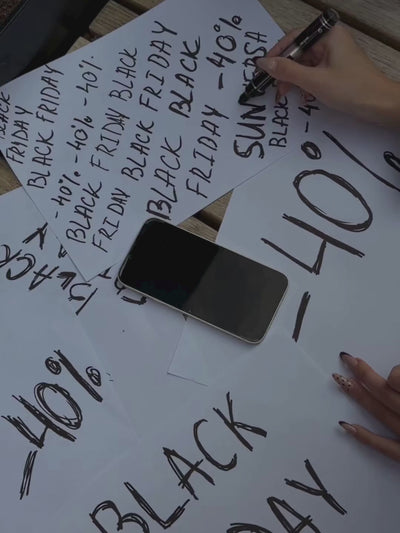 BLACK
FRIDAY
BLACK FRIDAY
-40% -40% -40%
BLACK FRIDAY BLACK
FRIDAY BLACK FRIDAY
BLACK BLACK
FRIDAY -40%
SUNVERSA
BLACK
-40%
-40%
BLACK
DAY